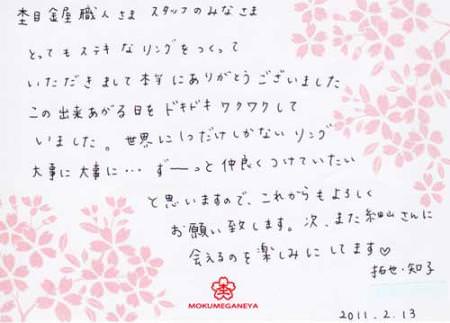 杢目金屋 職人さま スタッフのみなさま
とってもステキなリングをつくって
いただきまして本当にありがとうございました
この出来あがる日をドキドキワクワクして
いました。世界に1つだけしかないリング
大事に大事に… ずーっと仲良くつけていたい
と思いますので、これからもよろしく
お願い致します。次、また細山さんに
会えるのを楽しみにしてます♡
拓也・知子
MOKUMEGANEYA
2011.2.13